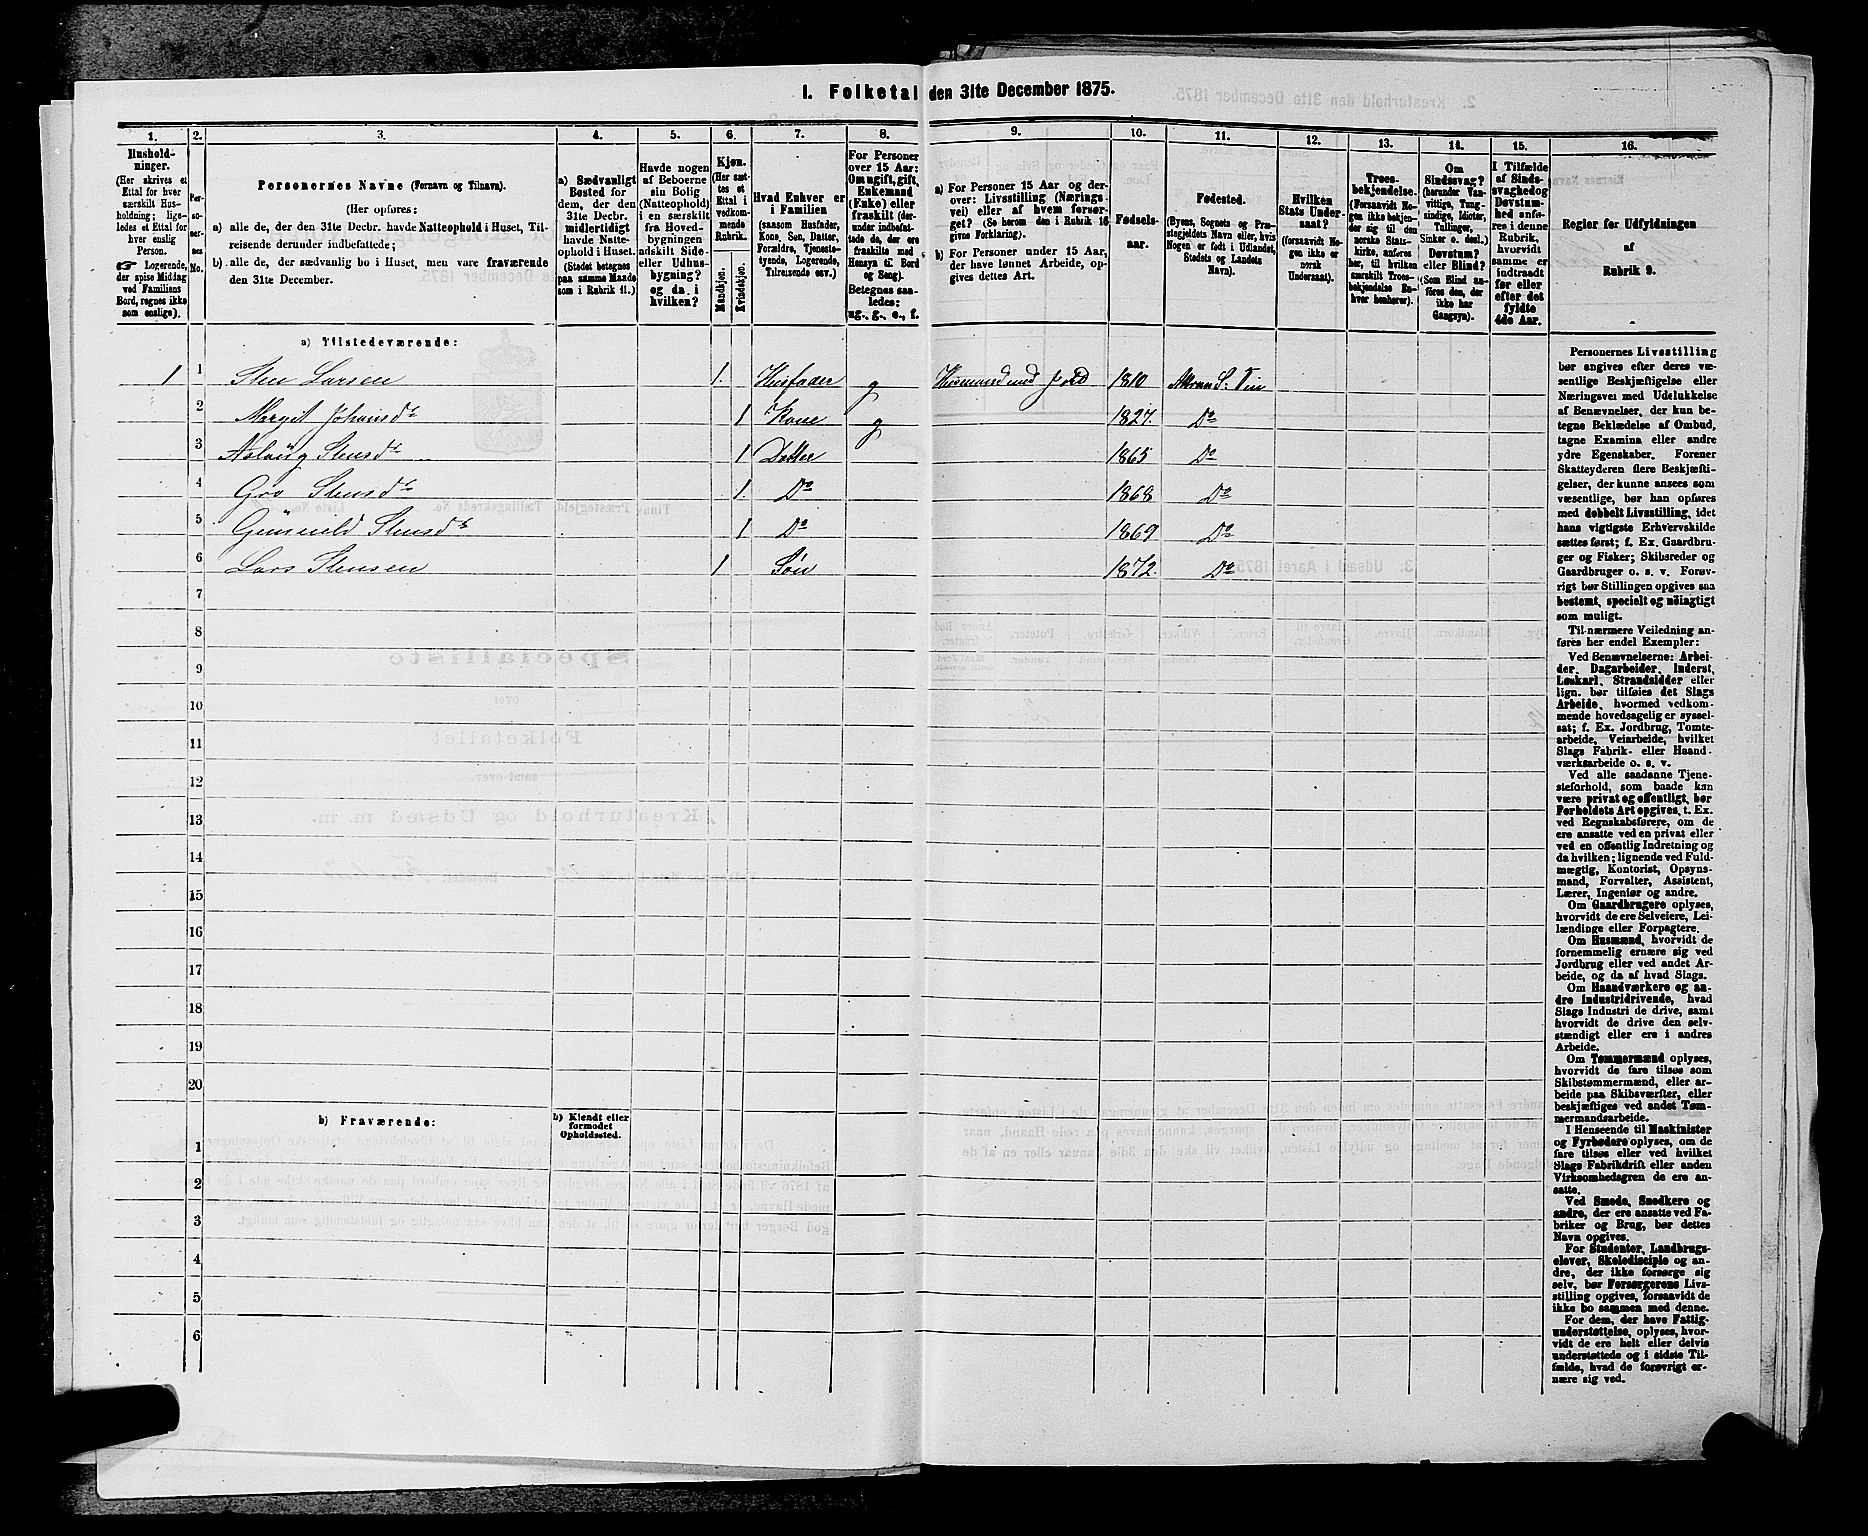 I. Folketal den 31te December 1875.
1. 2. 3. 4. 5. 6. 7. 8. 9. 10. 11. 12. 13. 14. 15. 16.
Husholdninger.
(Her skrives et
Ettal for hver
særskilt Husholdning;
ligeledes et Ettal for
hver enslig
Person.
☞ Logerende,
der spise Middag
ved Familiens
Bord, regnes ikke
som enslige).
Personernes No.
Personernes Navne (Fornavn og Tilnavn).
(Her opføres:
a) alle de, der den 31te Decbr. havde Natteophold i Huset, Tilreisende
derunder indbefattede;
b) alle de, der sædvanlig bo i Huset, men vare fraværende
den 31te December.
a) Sædvanligt
Bosted for
dem, der den
31te Decbr.
midlertidigt
havde Natteophold
i Huset.
(Stedet betegnes
paa samme Maade
som i Rubrik 11.)
Havde nogen
af Beboerne
sin Bolig
(Natteophold)
i en særskilt
fra Hovedbygningen
adskilt Side-
eller Udhusbygning?
og da i
hvilken?
Kjøn.
(Her sættes
et
Ettal i
vedkommende
Rubrik.
Mandkjøn.
Kvindekjøn.
Hvad Enhver er
i Familien
(saasom Husfader,
Kone, Søn, Datter,
Forældre, Tjenestetyende,
Logerende,
Tilreisende osv.)
For Personer
over 15 Aar:
Om ugift, gift,
Enkemand
(Enke) eller
fraskilt (derunder
indbefattede
de, der ere
fraskilte med
Hensyn til Bord
og Seng).
Betegnes saaledes:
ug., g., e., f.
a) For Personer 15 Aar og derover:
Livsstilling (Næringsvei)
eller af hvem forsørget?
(Se herom den i Rubrik 16
givne Forklaring).
b) For Personer under 15 Aar,
der have lønnet Arbeide, opgives
dettes Art.
Fødselsaar.
Fødested.
(Byens, Sognets og Præstegjeldets
Navn eller, hvis
Nogen er født i Udlandet,
Stedets og Landets
Navn).
Hvilken
Stats Undersaat?
(forsaavidt Nogen
ikke er
norsk
Undersaat).
Troesbekjendelse.
(Forsaavidt Nogen
ikke bekjender
sig til den
norske Statskirke,
anføres
her, til hvilken
særskilt Troesbekjendelse
Enhver
henhører).
Om
Sindssvag?
(herunder Vanvittige,
Tungsindige,
Idioter,
Tullinger,
Sinker o. desl.)
Døvstum?
eller Blind?
(Som Blind anføres
den, der
ikke har
Gangsyn).
I Tilfælde
af Sindssvaghed
og
Døvstumhed
anføres
i denne
Rubrik,
hvorvidt
samme er
indtraadt
før eller
efter det
fyldte
4de Aar.
Regler for Udfyldningen
af
Rubrik 9.
a) Tilstedeværende:
1 1 Sten Larsen 1. Husfader g Husmand med Jord 1810 Atraa S. Tin
2 Margit Johansdr 1 Kone g 1827. Do
3 Aslaug Stensdr 1 Datter 1865 Do
4 Gro Stensdr 1. Do 1868 Do
5 Gunnild Stensdr 1 Do 1869 Do
6 Lars Stensen 1 Søn 1872. Do
7
8
9
10
11
12
13
14
15
16
17
18
19
20
b) Fraværende:
b) Kjendt eller
formodet
Opholdssted.
1
2
3
4
5
6
Personernes Livsstilling
bør angives efter deres væsentlige
Beskjæftigelse eller
Næringsvei med Udelukkelse
af Benævnelser, der kun betegne
Beklædelse af Ombud,
tagne Examina eller andre
ydre Egenskaber. Forener
Skatteyderen flere Beskjæftigelser,
der kunne ansees som
væsentlige, bør han opføres
med dobbelt Livsstilling, idet
hans vigtigste Erhvervskilde
sættes først; f. Ex. Gaardbruger
og Fisker; Skibsreder og
Gaardbruger o. s. v. Forøvrigt
bør Stillingen opgives saa
bestemt, specielt og nøiagtigt
som muligt.
Til nærmere Veiledning anføres
her endel Exempler:
Ved Benævnelserne: Arbeider,
Dagarbeider, Inderst,
Løskarl, Strandsidder eller
lign. bør tilføies det Slags
Arbeide, hvormed vedkommende
hovedsagelig er sysselsat;
f. Ex. Jordbrug, Tomtearbeide,
Veiarbeide, hvilket
Slags Fabrik- eller Haandværksarbeide
o. s. v.
Ved alle saadanne Tjenesteforhold,
som baade kan
være privat og offentligt, bør
Forholdets Art opgives, t. Ex.
ved Regnskabsførere, om de
ere ansatte ved en privat eller
ved en offentlig Indretning og
da hvilken; lignende ved Fuldmægtig,
Kontorist, Opsynsmand,
Forvalter, Assistent,
Lærer, Ingeniør og andre.
Om Gaardbrugere oplyses,
hvorvidt de ere Selveiere, Leilændinge
eller Forpagtere.
Om Husmænd, hvorvidt de
fornemmelig ernære sig ved
Jordbrug eller ved andet Arbeide,
og da af hvad Slags.
Om Haandværkere og andre
Industridrivende, hvad
Slags Industri de drive, samt
hvorvidt de drive den selvstændigt
eller ere i andres
Arbeide.
Om Tømmermænd oplyses,
hvorvidt de fare tilsøs som
Skibstømmermænd, eller arbeide
paa Skibsværfter, eller
beskjæftiges ved andet Tømmermandsarbeide.
I Henseende til Maskinister
og Fyrbødere oplyses, om de
fare tilsøs eller ved hvilket
Slags Fabrikdrift eller anden
Virksomhedsgren de ere ansatte.
Ved Smede, Snedkere og
andre, der ere ansatte ved Fabriker
og Brug, bør dettes
Navn opgives.
For Studenter, Landbrugselever,
Skoledisciple og andre,
der ikke forsørge sig
selv, bør Forsørgerens Livsstilling
opgives, forsaavidt de
ikke bo sammen med denne.
For dem, der have Fattigunderstøttelse,
oplyses, hvorvidt
de ere helt eller delvis
understøttede og i sidste Tilfælde,
hvad de forøvrigt ernære
sig ved.